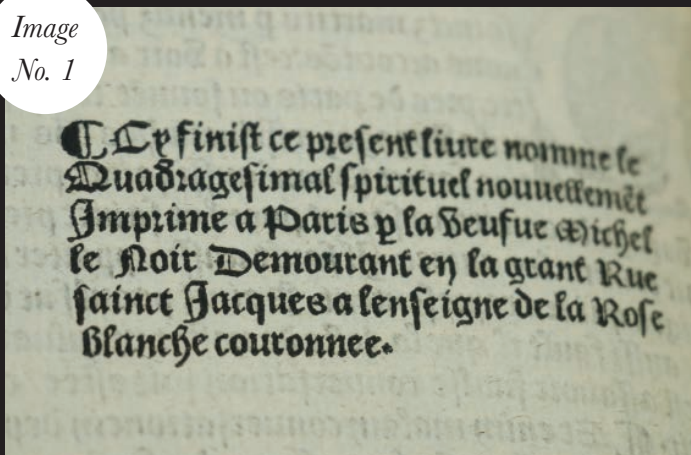 Image
No. 1
¶ Cy finist ce present liure nomme le
Quadragesimal spirituel nouuellemēt
Imprime a Paris ꝑ la Veufue Michel
le Noir Demourant en la grant Rue
sainct Jacques a lenseigne de la Rose
blanche couronnee.